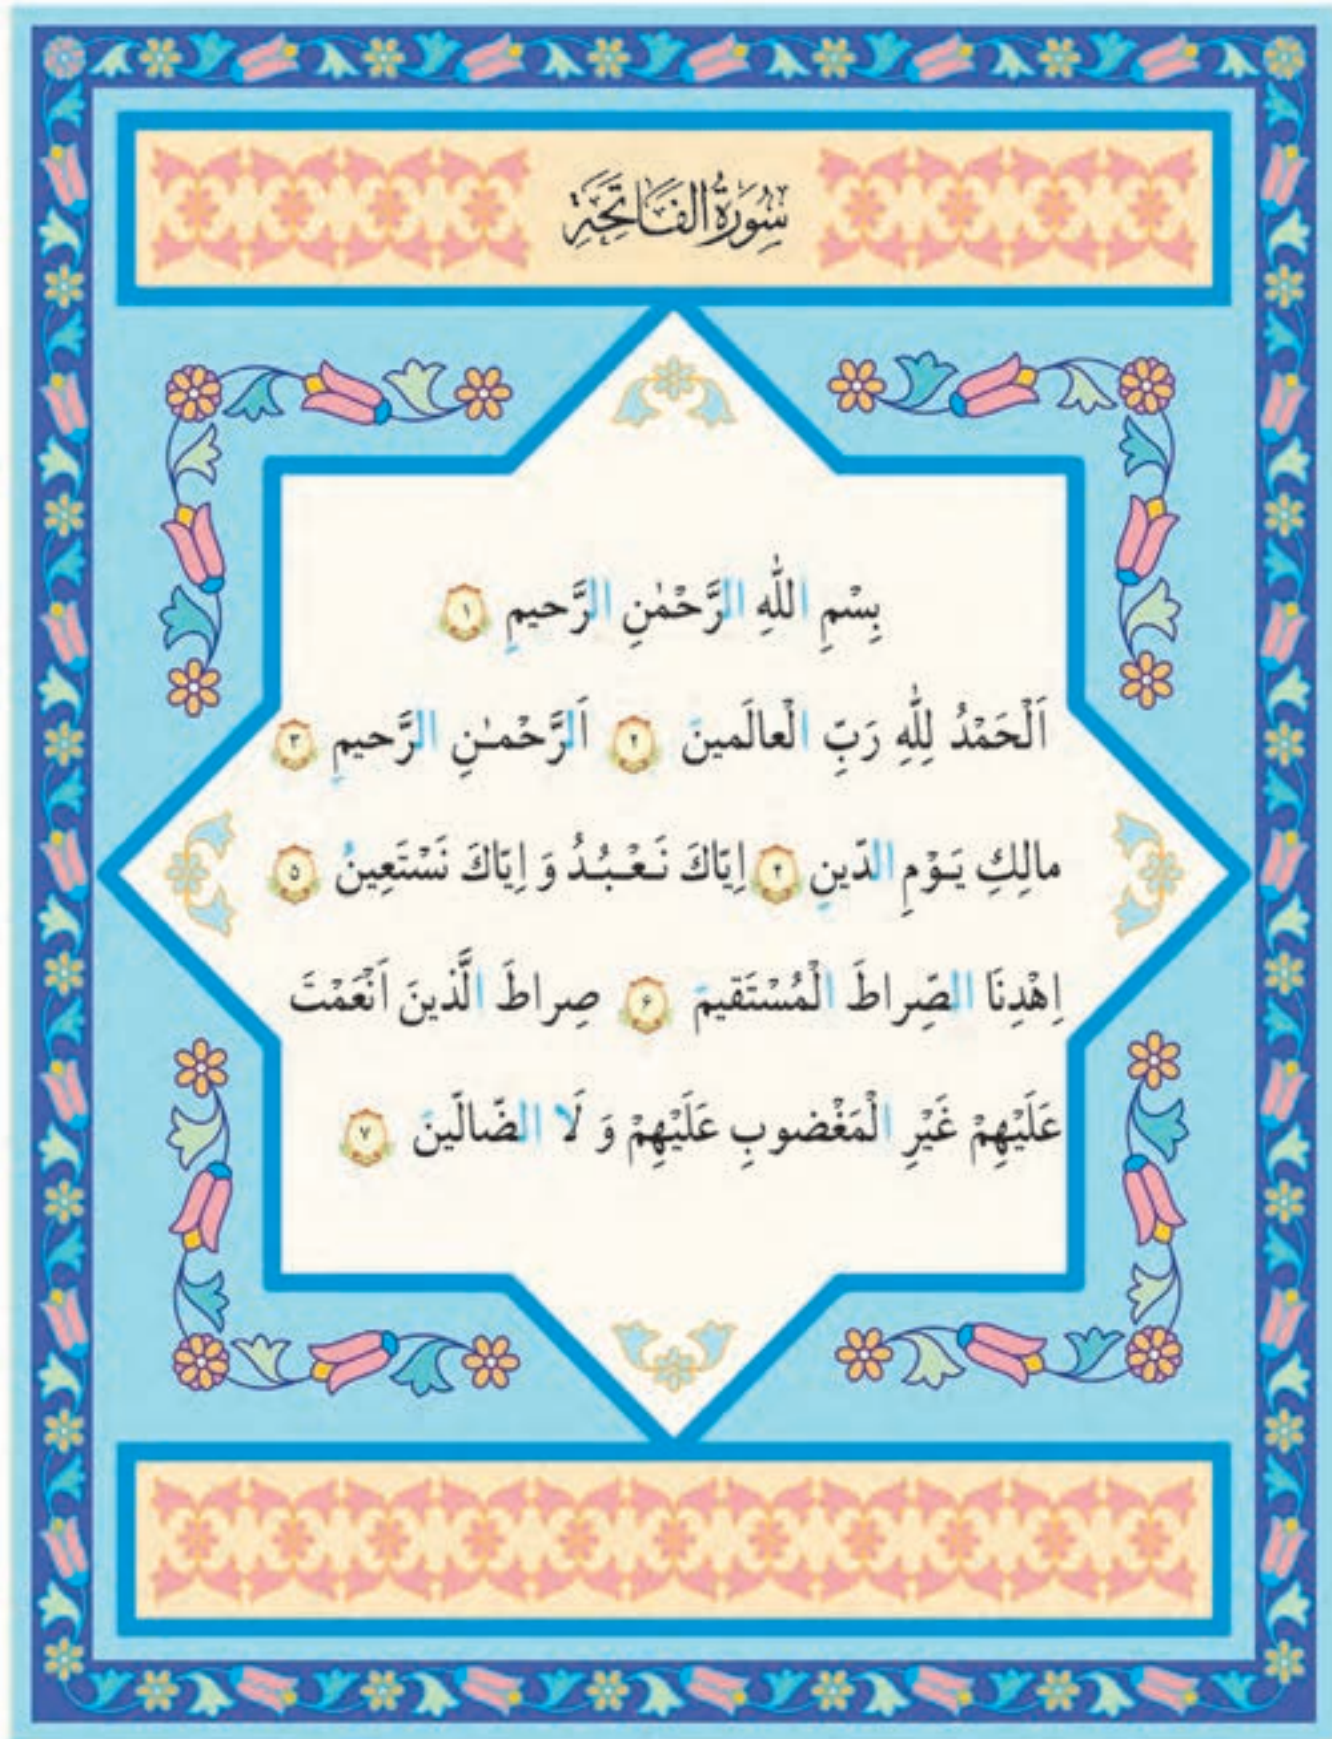 سُورَةُ الفَاتِحَةِ
بِسْمِ اللّٰهِ الرَّحْمٰنِ الرَّحیمِ ١
اَلْحَمْدُ لِلّٰهِ رَبِّ الْعالَمینَ ٢ اَلرَّحْمـٰنِ الرَّحیمِ ٣
مالِكِ یَـوْمِ الدّینِ ۴ اِیّاكَ نَـعْـبُـدُ وَ اِیّاكَ نَسْتَعِینُ ۵
اِهْدِنَا الصِّراطَ الْمُسْتَقیمَ ۶ صِراطَ الَّذینَ اَنْعَمْتَ
عَلَیْهِمْ غَیْرِ الْمَغْضوبِ عَلَیْهِمْ وَ لَا الضّالّینَ ٧